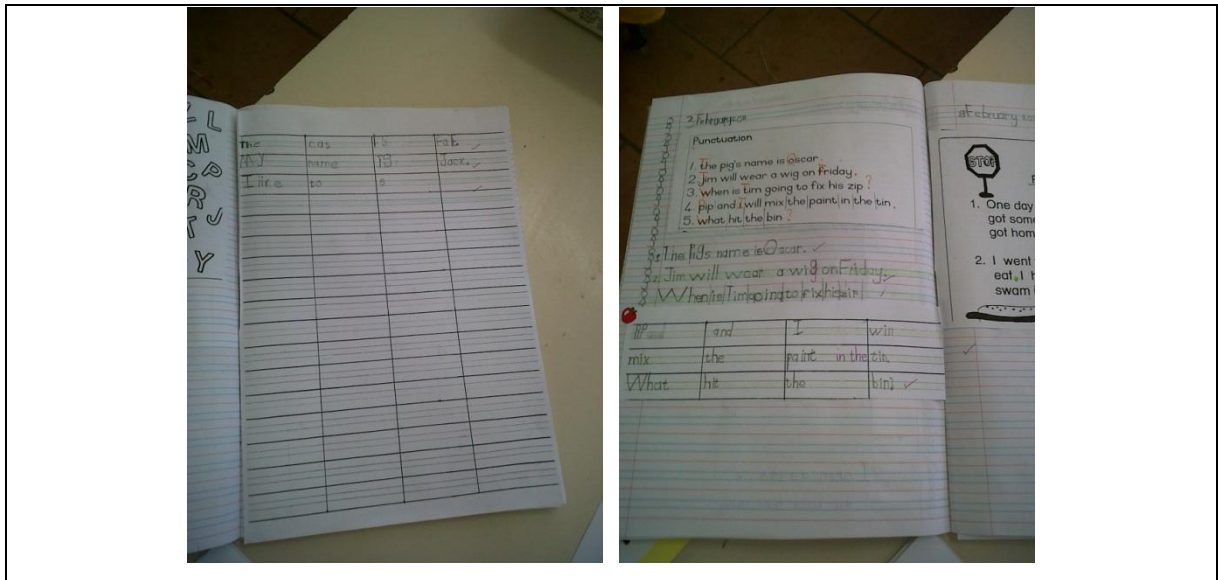 L
M
C P
R
T J
Y
The cas is
My name is Jack.
I like to
2 February
Punctuation
1. the pig's name is oscar.
2. Jim will wear a wig on Friday.
3. when is tim going to fix his zip?
4. pip and i will mix the paint in the tin.
5. what hit the bin?
1. The Pigs name is Oscar.
2. Jim will wear a wig on Friday.
When is Tim going to fix his
and I win
mix the paint in the tin.
What hit the bin?
February
STOP
1. One day
got som
got hom
2. I went
eat. I h
swam